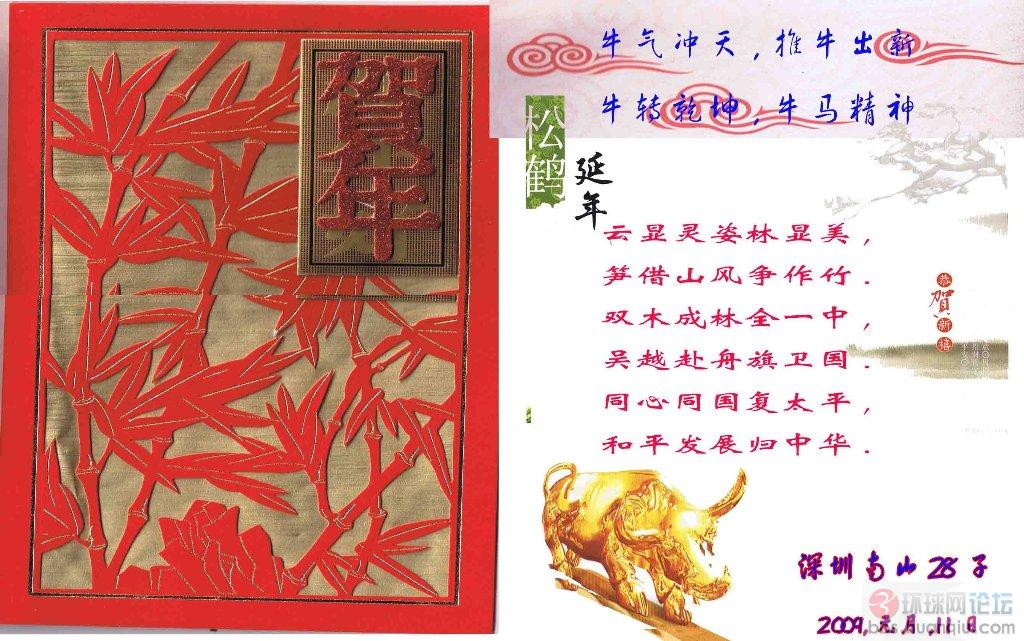 賀年
牛气冲天，推牛出新
牛转乾坤，牛马精神
松鹤
延年
云显灵姿林显美，
笋借山风争作竹．
双木成林全一中，
吴越赴舟旗卫国．
同心同国复太平，
和平发展归中华．
恭
贺
新
禧
深圳南山28子
2009，元月11日
环球网论坛
bbs.huanqiu.com